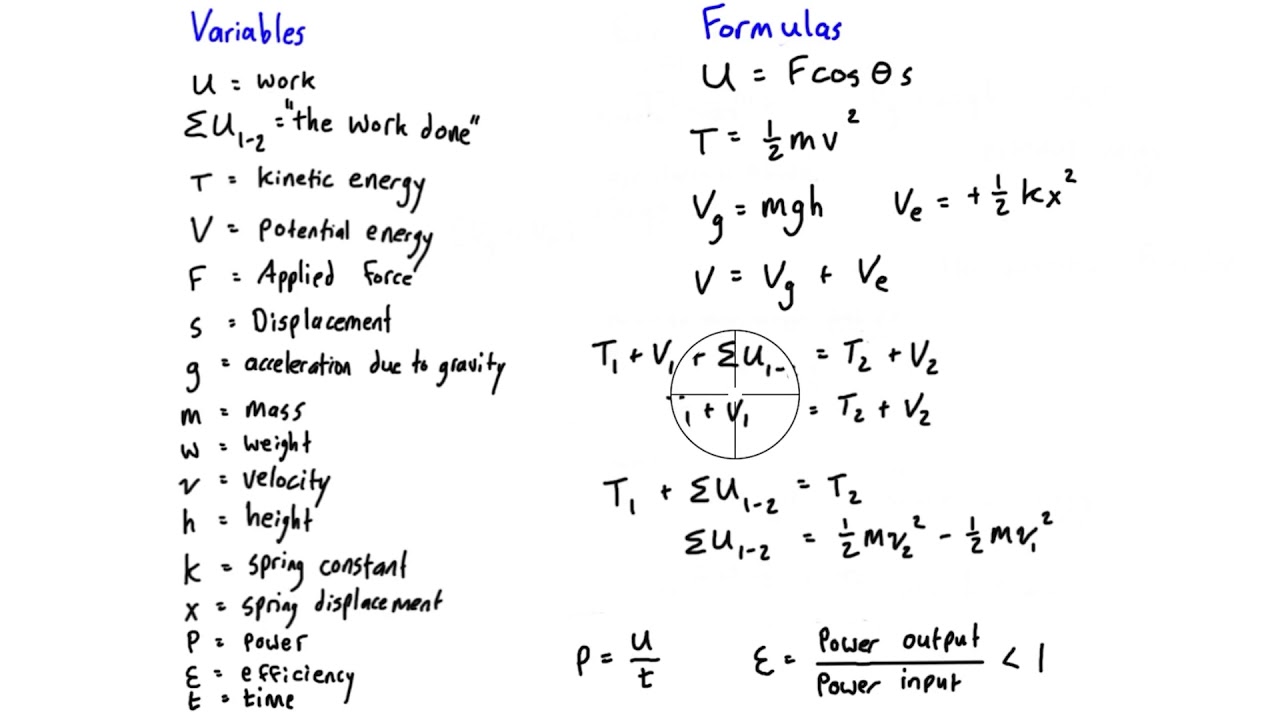 Variables
U = work
ΣU₁₋₂ = "the work done"
T = kinetic energy
V = potential energy
F = Applied force
s = Displacement
g = acceleration due to gravity
m = mass
w = weight
v = velocity
h = height
k = spring constant
x = spring displacement
P = power
ε = efficiency
t = time
Formulas
U = Fcosθs
T = ½mv²
Vg = mgh Ve = +½kx²
V = Vg + Ve
T₁ + V₁ + ΣU₁₋ = T₂ + V₂
₁ + V₁ = T₂ + V₂
T₁ + ΣU₁₋₂ = T₂
ΣU₁₋₂ = ½mv₂² - ½mv₁²
P = U/t ε = Power output/Power input < 1